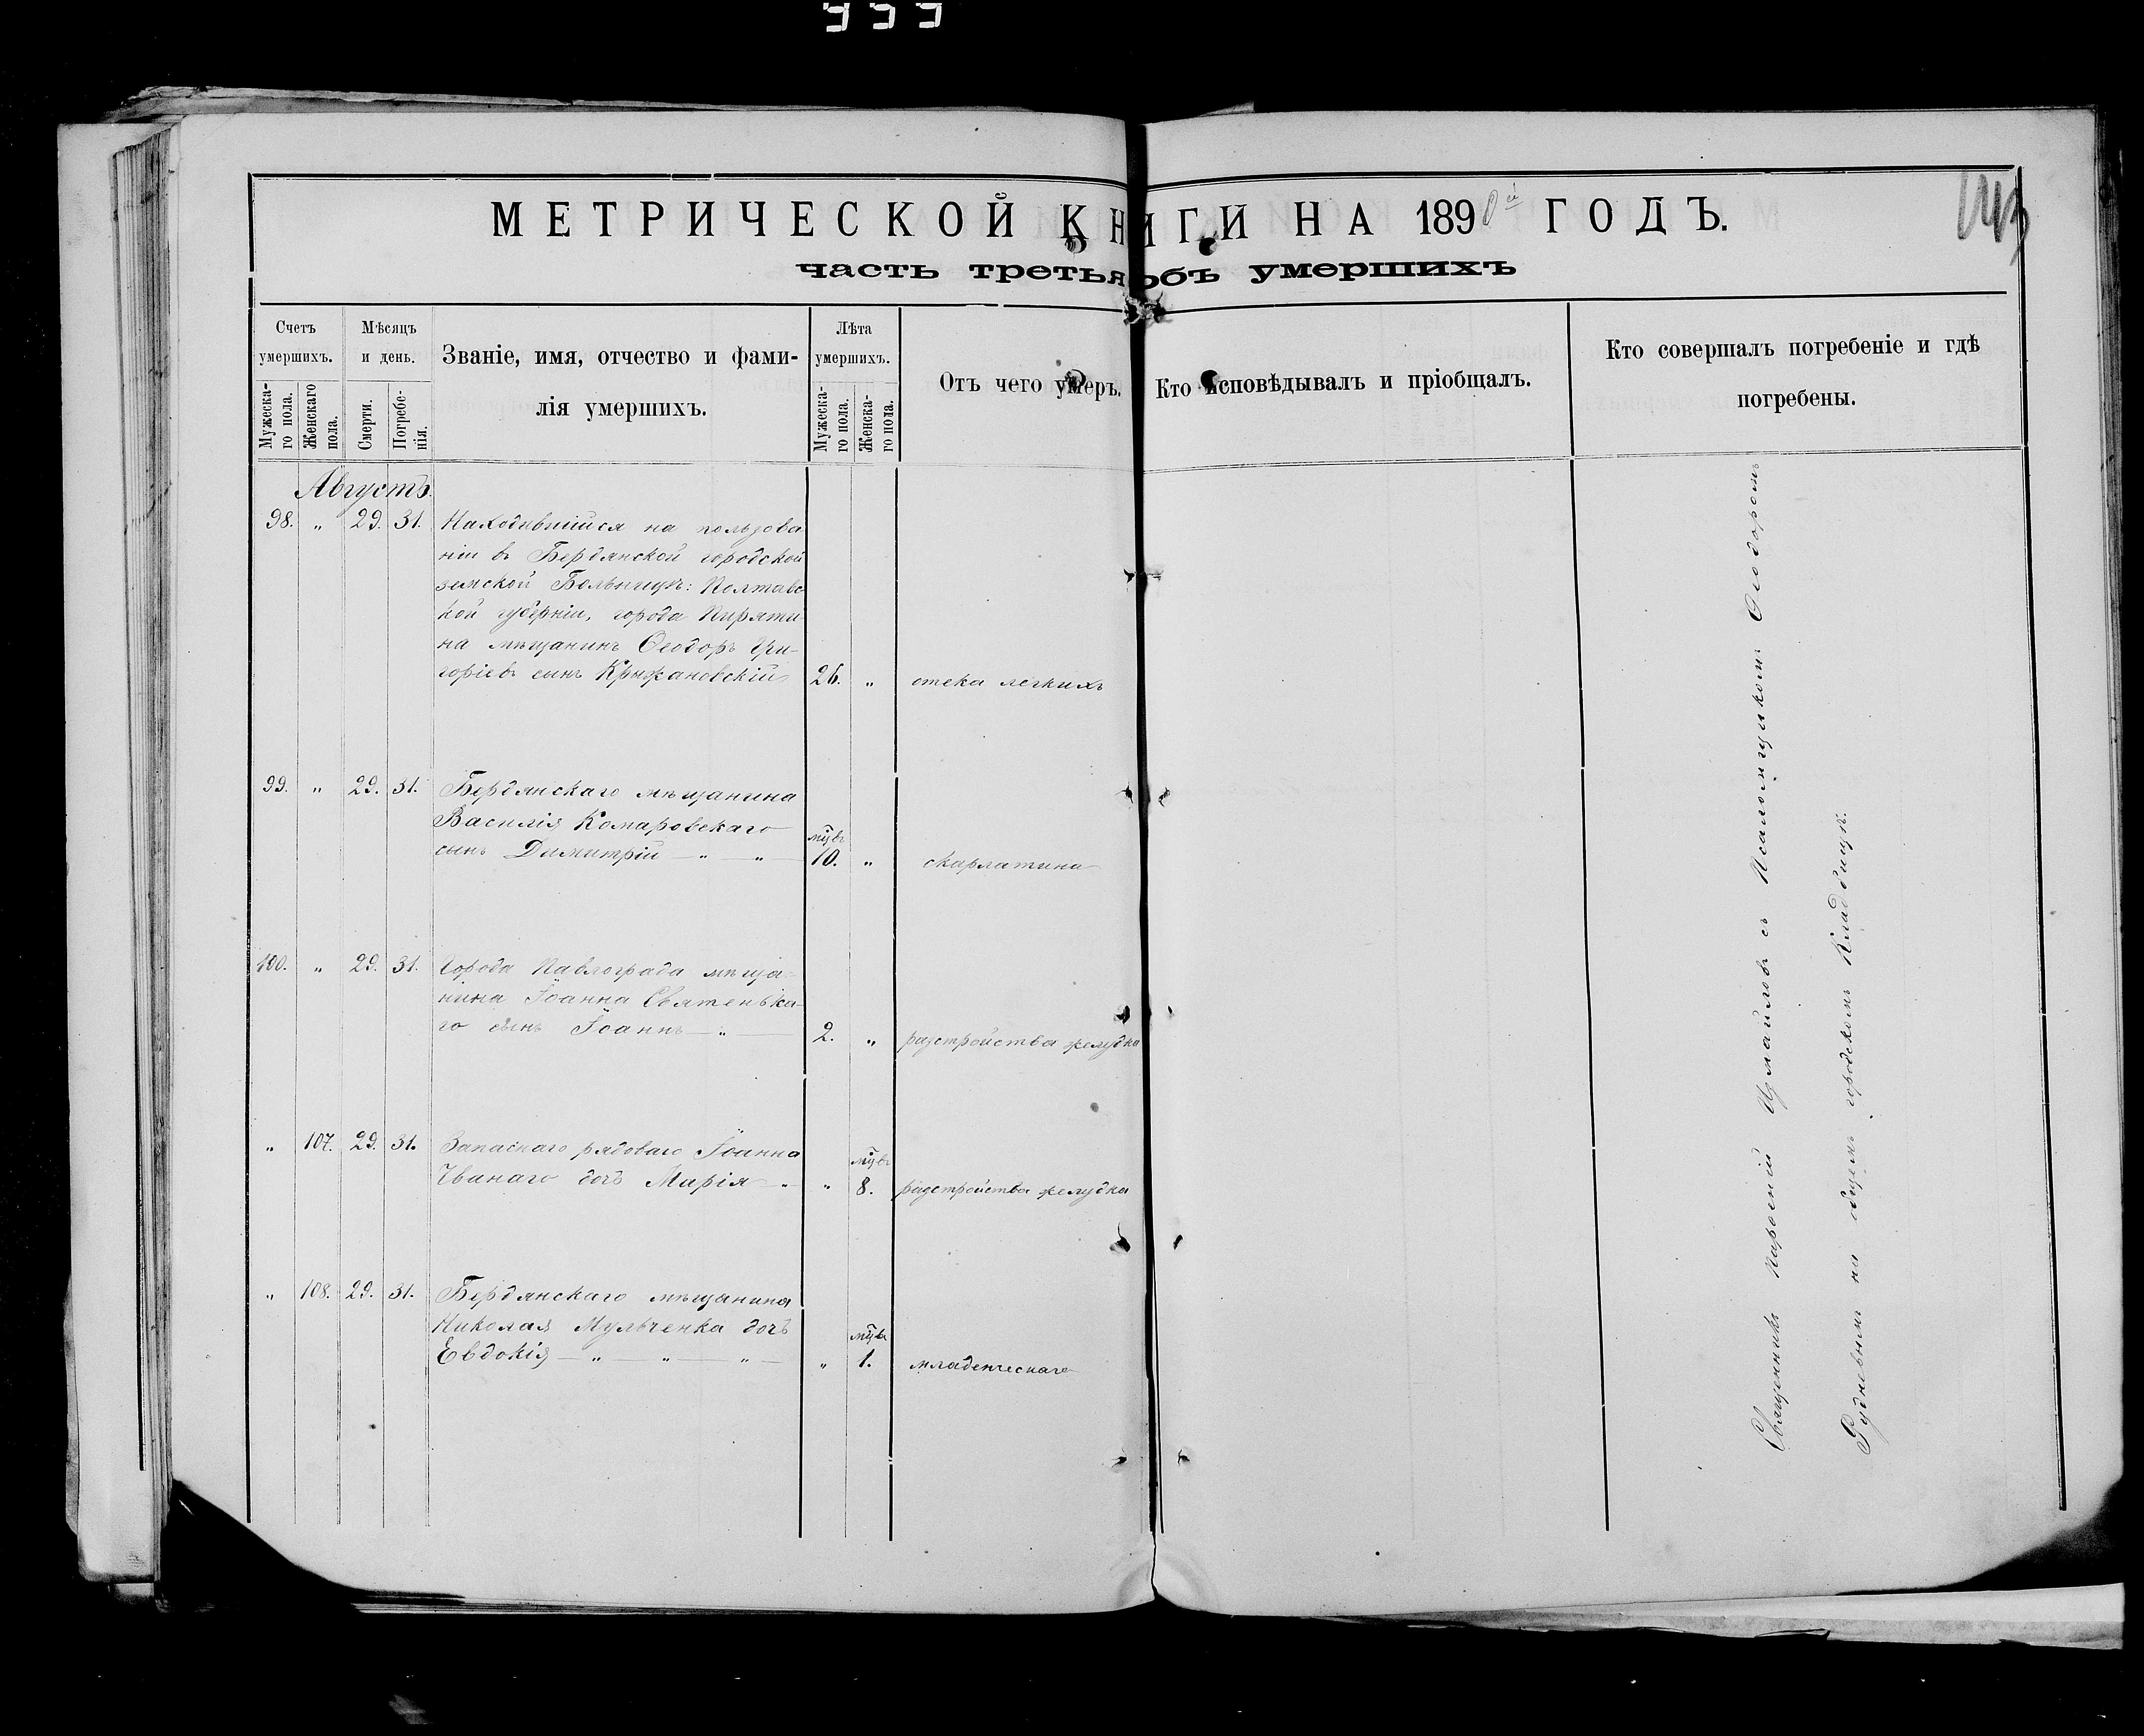 МЕТРИЧЕСКОЙ КНИГИ НА 1890й ГОДЪ.
часть третья объ умершихъ
Счетъ умершихъ.
Мужеска-го пола.
Женскаго пола.
Мѣсяцъ и день.
Смерти.
Погребе-нія.
Званіе, имя, отчество и фами-
лія умершихъ.
Лѣта умершихъ.
Мужеска-го пола.
Женска-го пола.
Отъ чего умеръ.
Кто исповѣдывалъ и пріобщалъ.
Кто совершалъ погребеніе и гдѣ
погребены.
Августъ.
98. „ 29. 31. Находившійся на пользова
ніи въ Бердянской городской
земской Больницѣ: Полтавс
кой губерніи, города Пиряти
на мѣщанинъ Ѳеодоръ Гри-
горіевъ сынъ Крыжановскій 26. „ отека легкихъ
99. „ 29. 31. Бердянскаго мѣщанина
Василія Комаровскаго
сынъ Димитрій — „ — „ — мцвъ 10. „ скарлатина
100. „ 29. 31. Города Павлограда мѣща-
нина Іоанна Святенька-
го сынъ Іоаннъ — „ — 2. „ разстройства желудка
„ 107. 29. 31. Запаснаго рядоваго Іоанна
Чванаго дочь Марія — „ „ мцвъ 8. разстройства желудка
„ 108. 29. 31. Бердянскаго мѣщанина
Николая Мульченка дочь
Евдокія — „ — „ — „ — „ мцъ 1. младенческаго
Священникъ Измаиловъ съ Псаломщикомъ Ѳеодоромъ
Рудневымъ на общемъ городскомъ Кладбищѣ.